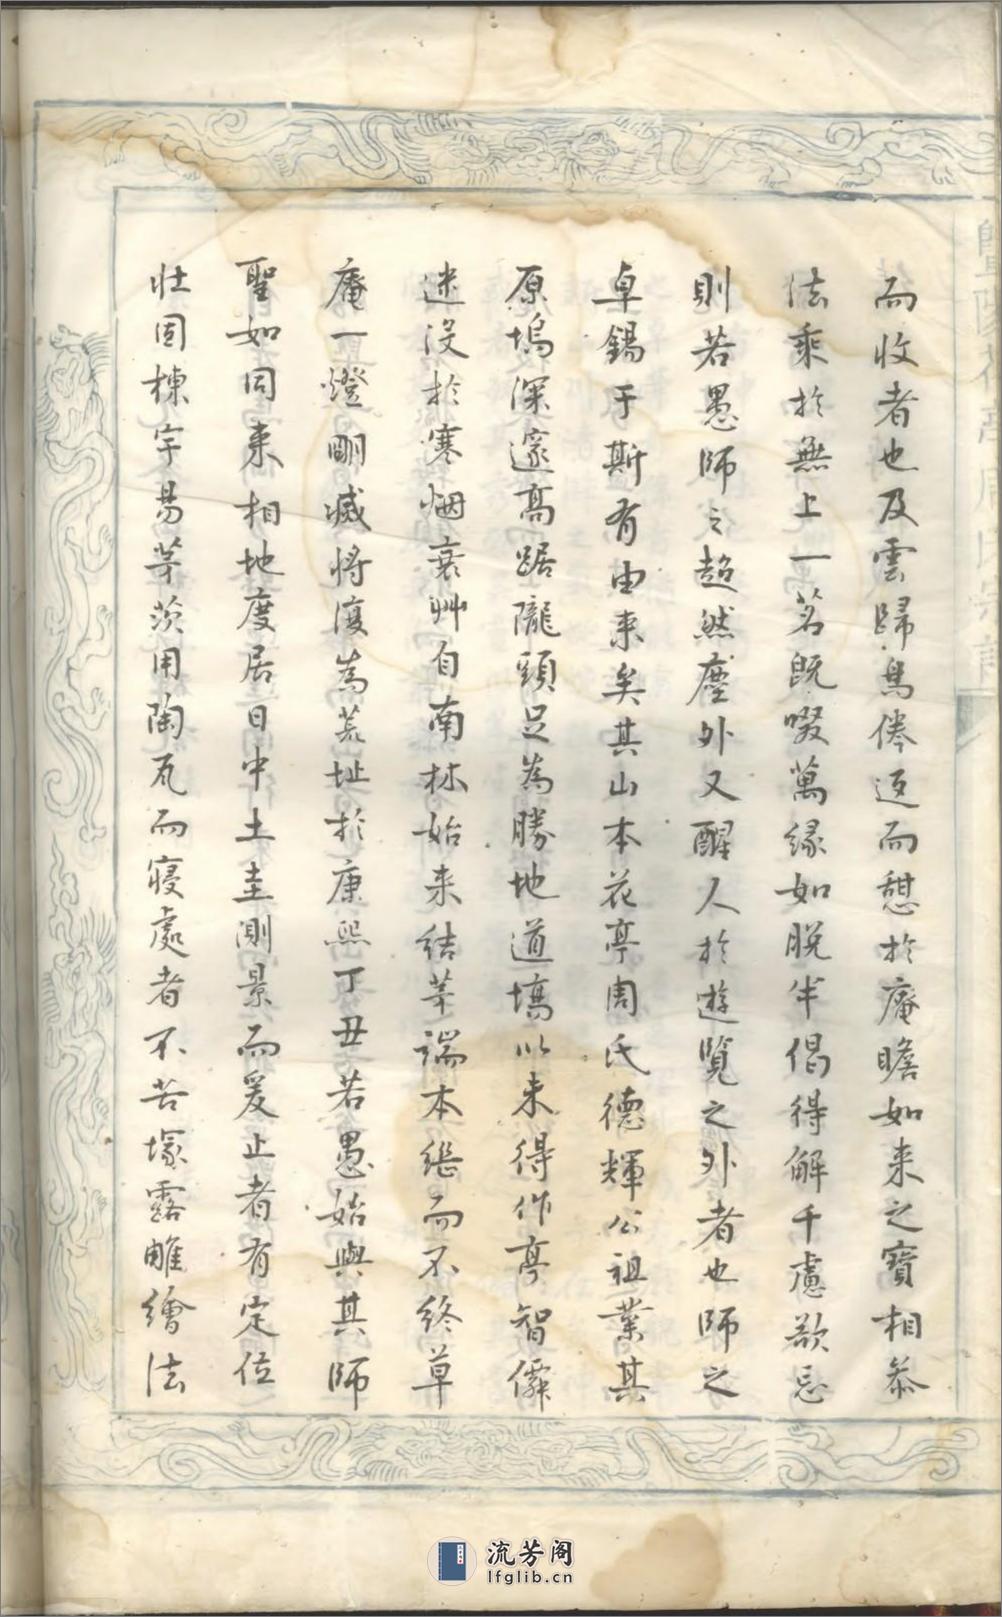 而收者也及雲歸鳥倦返而憇於庵瞻如来之寶相恭
法乘於無上一茗既啜萬緣如脫半偈得解千慮欲忘
則若愚師之超然塵外又醒人於遊覽之外者也師之
卓錫于斯有由来矣其山本花亭周氏德輝公祖業其
原塢深邃高踞隴頭足為勝地道塲以来得作亭智僻
迷没於寒烟衰艸自南林始来結茅端本繼而不終草
庵一燈明滅將復為荒址於康熙丁丑若愚始與其師
聖如同来相地度居日中土圭測景而爰止者有定位
壮固棟宇易茅茨用陶瓦而寝處者不苦塚露雕繪法
流芳阁
lfglib.cn